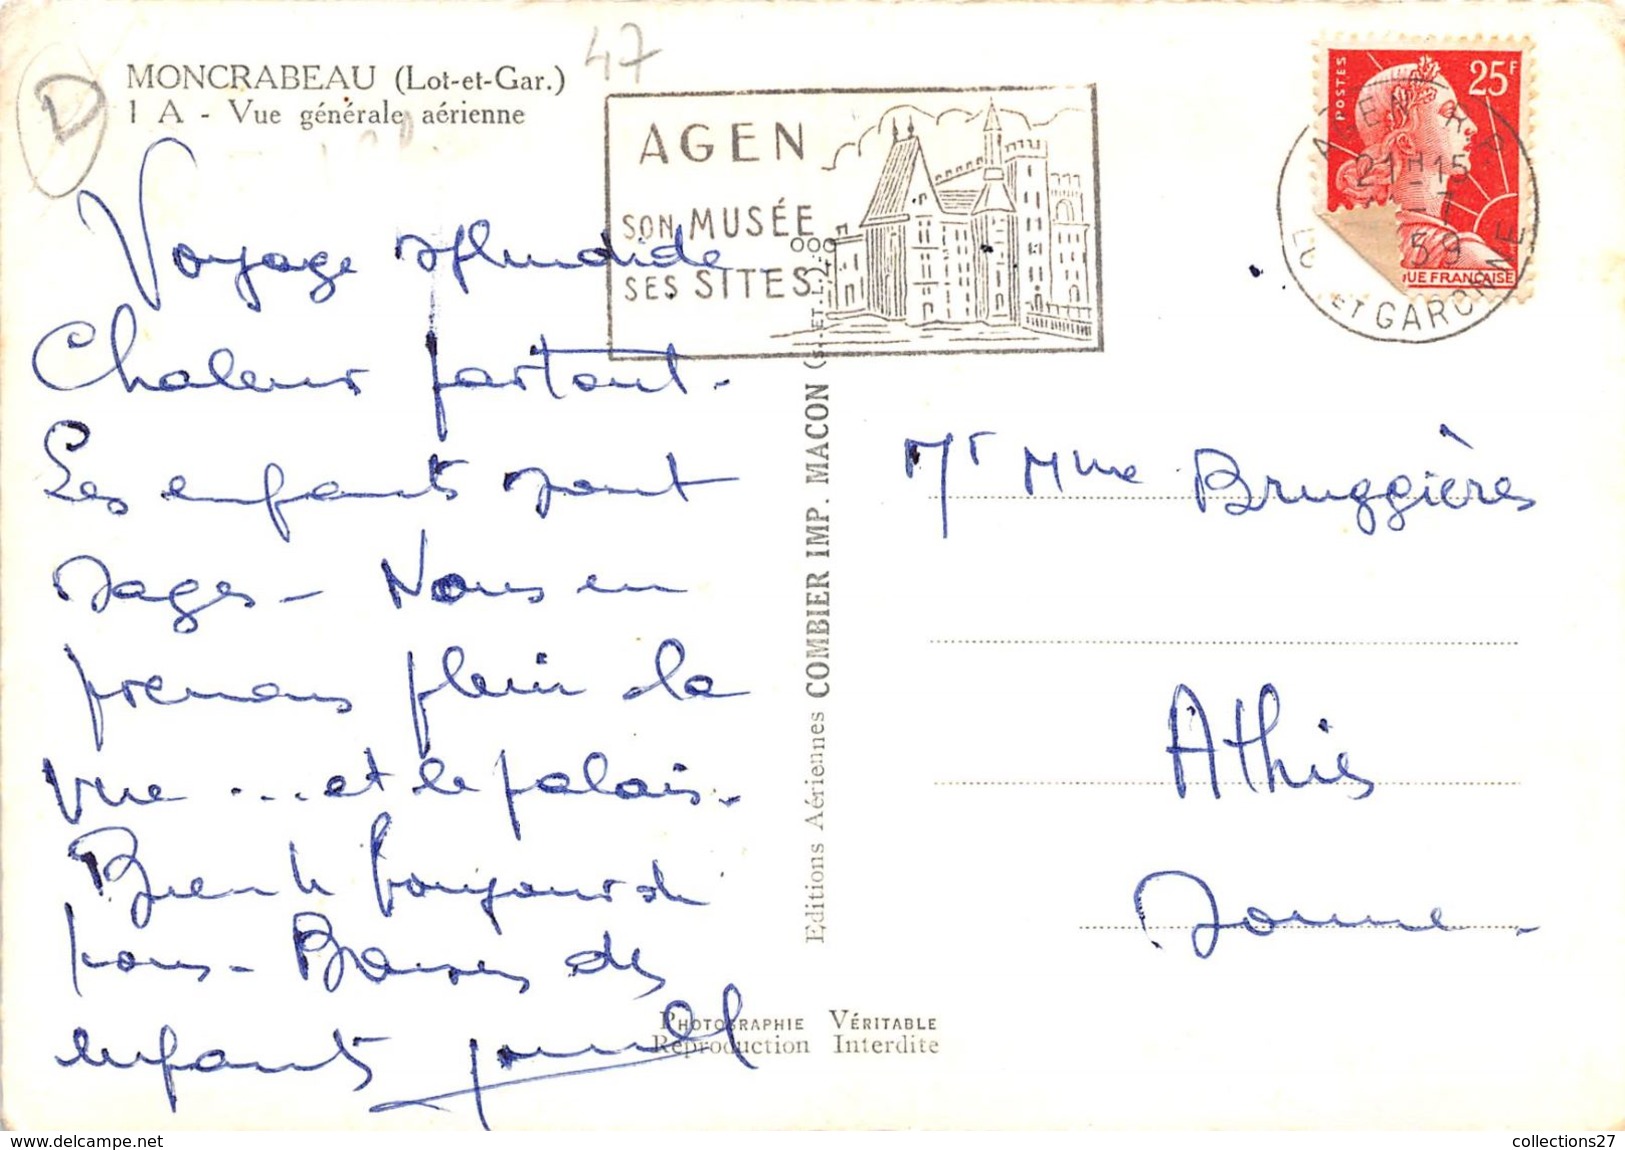 47
D
MONCRABEAU (Lot-et-Gar.)
1 A - Vue générale aérienne
AGEN
SON MUSÉE
SES SITES
POSTES
25F
AGEN R.P.
21H15
-7
59
LOT ET GARONNE
QUE FRANÇAISE
Voyage splendide
Chaleur partout -
Les enfants sont
sages - Nous en
prenons plein la
vue ... et le palais -
Bien le bonjour de
nous - Baisers des
enfants
Mr Mme Bruggières
Athis
Somme -
Editions Aériennes COMBIER IMP. MACON (S.-ET-L.)
PHOTOGRAPHIE VÉRITABLE
Reproduction Interdite
www.delcampe.net
collections27